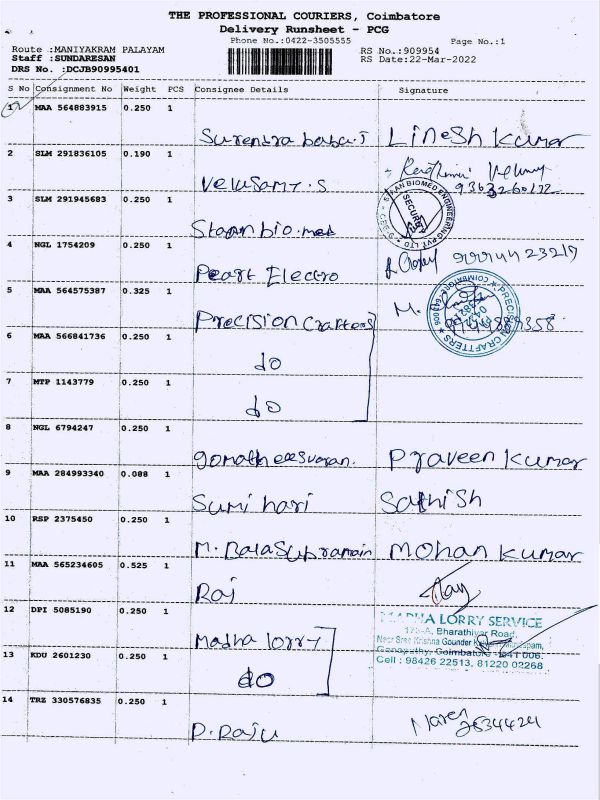 THE PROFESSIONAL COURIERS, Coimbatore
Delivery Runsheet - PCG
Phone No.:0422-3505555
Page No.:1
Route :MANIYAKRAM PALAYAM
Staff :SUNDARESAN
DRS No. :DCJB90995401
RS No.:909954
RS Date:22-Mar-2022
S No Consignment No Weight PCS Consignee Details Signature
1 MAA 564883915 0.250 1
Surendra babu.J Linesh kumar
2 SLM 291836105 0.190 1
Velusamy.S
9363260172
3 SLM 291945683 0.250 1
Staan bio.med
STAAN BIOMED ENGINEERING PVT LTD
SECURITY
4 NGL 1754209 0.250 1
Pearl Electro
5 MAA 564575387 0.325 1
Precision crafters M.
PRECISION CRAFTERS
COIMBATORE 641006
6 MAA 566841736 0.250 1
do
7 MTP 1143779 0.250 1
do
8 NGL 6794247 0.250 1
gomatheeswaran. Praveen kumar
9 MAA 284993340 0.088 1
Sumi hari Sathish
10 RSP 2375450 0.250 1
M. Balasubramain Mohan kumar
11 MAA 565234605 0.525 1
Raj
12 DPI 5085190 0.250 1
Madha lorry
MADHA LORRY SERVICE
173-A, Bharathiyar Road,
Near Sree Krishna Gounder
Ganapathy, Coimbatore - 641 006.
Cell : 98426 22513, 81220 02268
13 KDU 2601230 0.250 1
do
14 TRZ 330576835 0.250 1
P. Raju Naren